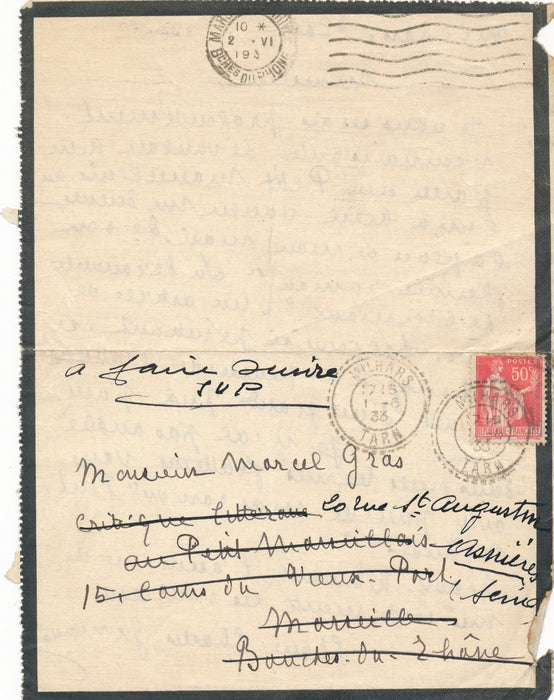 10 *
2 · VI
193
BCHES DU RHONE
POSTES
50c
REPUBLIQUE FRANÇAISE
a faire suivre
SVP
MILHARS
17 15
1 - 6
33
TARN
MILHARS
33
TARN
Monsieur Marcel Gras
critique littéraire 20 rue St Augustin
au Petit Marseillais Asnières
15, Cours du Vieux-Port / Seine
Marseille
Bouches-du-Rhône